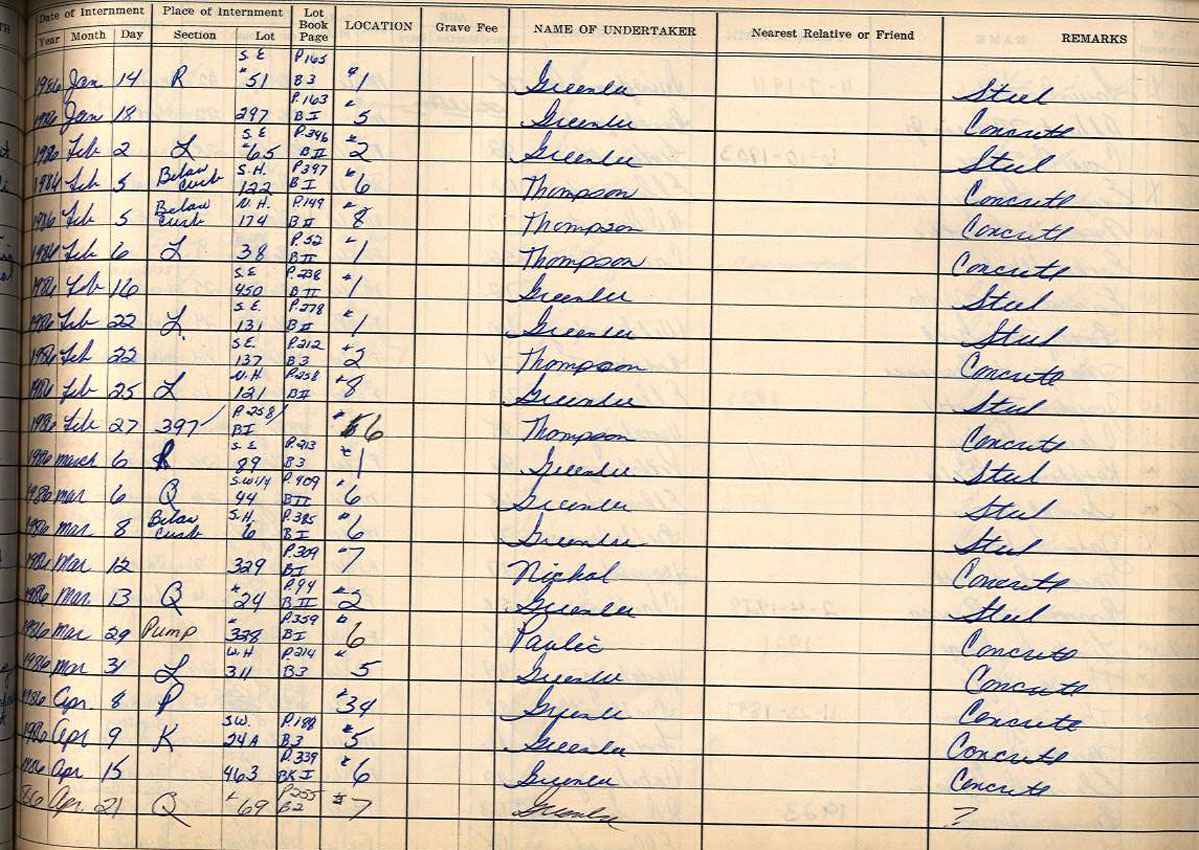 Date of Internment Place of Internment Lot Book Page LOCATION Grave Fee NAME OF UNDERTAKER Nearest Relative or Friend REMARKS
Year Month Day Section Lot
1986 Jan 14 R S.E #51 P.165 B3 #1 Greenlee Steel
1986 Jan 18 297 P.163 BI #5 Greenlee Concrete
1986 Feb 2 L S.E #65 P.346 BII #2 Greenlee Steel
1986 Feb 5 Below curb S.H. 122 P.397 BI #6 Thompson Concrete
1986 Feb 5 Below curb N.H. 174 P.149 BII #8 Thompson Concrete
1986 Feb 6 L 38 P.52 BII #1 Thompson Concrete
1986 Feb 16 S.E 450 P.238 BII #1 Greenlee Steel
1986 Feb 22 L S.E. 131 P.278 BII #1 Greenlee Steel
1986 Feb 22 S.E. 137 P.212 B3 #2 Thompson Concrete
1986 Feb 25 L N.H. 121 P.258 BII #8 Greenlee Steel
1986 Feb 27 397 P.258 BI #6 Thompson Concrete
1986 March 6 R S.E 89 P.213 B3 #1 Greenlee Steel
1986 Mar 6 Q S.W 1/4 44 P.409 BII #6 Greenlee Steel
1986 Mar 8 Below curb S.H. 6 P.385 BI #6 Greenlee Steel
1986 Mar 12 329 P.309 BI #7 Nichol Concrete
1986 Mar 13 Q #24 P.94 BII #2 Greenlee Steel
1986 Mar 29 Pump #328 P.359 BI #6 Paulic Concrete
1986 Mar 31 L W.H 311 P.214 B3 #5 Greenlee Concrete
1986 Apr. 8 P #34 Greenlee Concrete
1986 Apr 9 K S.W. 24A P.188 B3 #5 Greenlee Concrete
1986 Apr 15 463 P.339 BK I #6 Greenlee Concrete
Apr. 21 Q #69 P.255 B2 #7 Greenlee ?